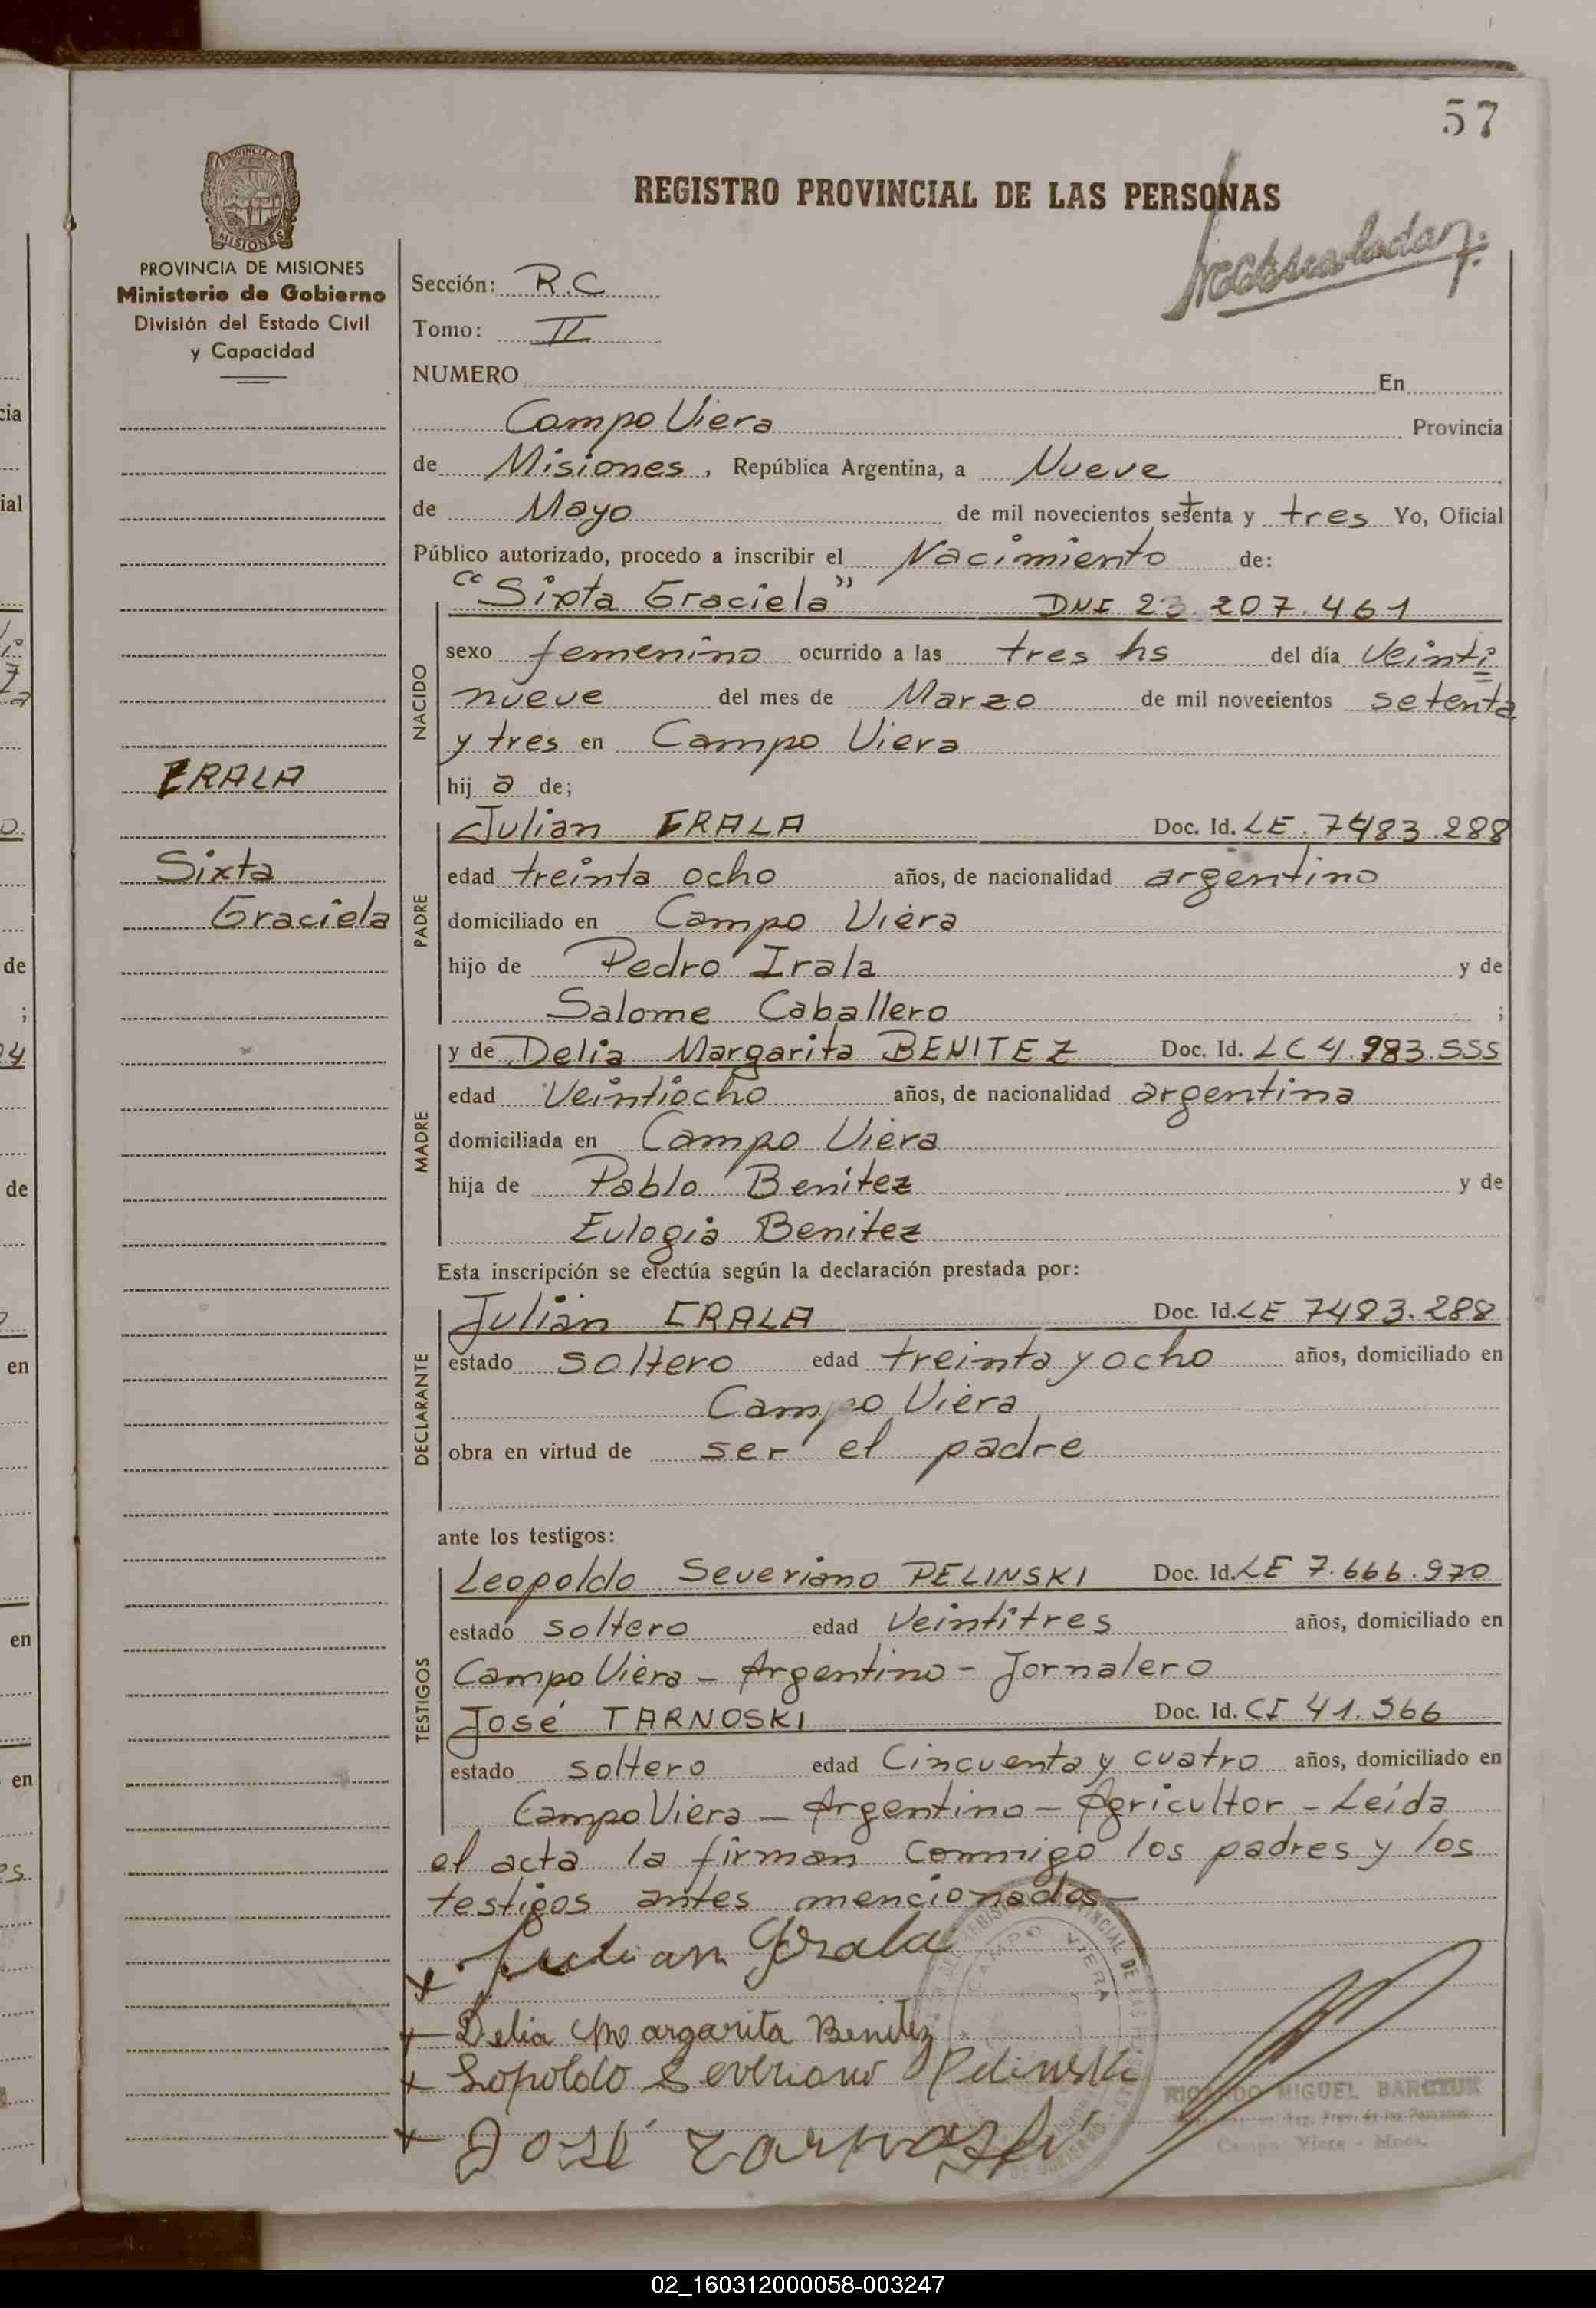 57
PROVINCIA DE
MISIONES
REGISTRO PROVINCIAL DE LAS PERSONAS
PROVINCIA DE MISIONES
Ministerio de Gobierno
División del Estado Civil
y Capacidad
Sección: R.C
Tomo: II
NUMERO En
Campo Viera Provincia
de Misiones, República Argentina, a Nueve
de Mayo de mil novecientos setenta y tres Yo, Oficial
Público autorizado, procedo a inscribir el Nacimiento de:
"Sixta Graciela" DNI 23.207.461
NACIDO
sexo femenino ocurrido a las tres hs del día Veinti
nueve del mes de Marzo de mil novecientos setenta
y tres en Campo Viera
hij a de;
IRALA
Sixta
Graciela
PADRE
Julian IRALA Doc. Id. LE. 7483.288
edad treinta ocho años, de nacionalidad argentino
domiciliado en Campo Viera
hijo de Pedro Irala y de
Salome Caballero ;
MADRE
y de Delia Margarita BENITEZ Doc. Id. LC 4.983.555
edad Veintiocho años, de nacionalidad argentina
domiciliada en Campo Viera
hija de Pablo Benitez y de
Eulogia Benitez
Esta inscripción se efectúa según la declaración prestada por:
DECLARANTE
Julian IRALA Doc. Id. LE 7483.288
estado soltero edad treinta y ocho años, domiciliado en
Campo Viera
obra en virtud de ser el padre
ante los testigos:
TESTIGOS
Leopoldo Severiano PELINSKI Doc. Id. LE 7.666.970
estado soltero edad Veintitres años, domiciliado en
Campo Viera - Argentino - Jornalero
José TARNOSKI Doc. Id. CI 41.566
estado soltero edad Cincuenta y cuatro años, domiciliado en
Campo Viera - Argentino - Agricultor - Leida
el acta la firman conmigo los padres y los
testigos antes mencionados-
x Julian Irala
x Delia Margarita Benitez
x Lopoldo Severiano Pelinski
x José Tarnoski
CAMPO VIERA
MIGUEL
Campo Viera - Mnes.
02_160312000058-003247